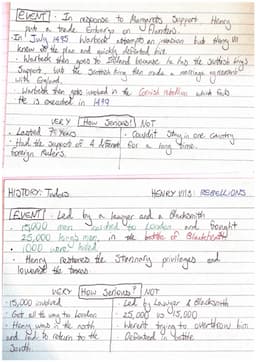 EVENT: In response to Margaret's support, Henry
put a trade embargo on Flanders.
In July 1495 Warbeck attempts an invasion but Henry VII
knew of the plan and quickly defeated him.
- Warbeck then goes to because he has the Scottish king's
support, but the Scottish king then made a marriage agreement
with England.
- Warbeck then gets involved in the Cornish rebellion which fails
He is executed in 1499
VERY How Serious? NOT
- Lasted 7 years
- Couldn't stay in one country
- Had the support of 4 different
for a long time.
foreign rulers.
HISTORY: Tudors HENRY VII'S: REBELLIONS
EVENT: Led by a lawyer and a blacksmith
- 15,000 men marched to London and fought
25,000 king's men, in the battle of Blackheath
- 1000 were killed
- Henry restores the Stannary privileges and
lowered the taxes.
VERY How Serious? NOT
- 15,000 involved
- Led by Lawyer & Blacksmith
- Got all the way to London
- 25,000 vs 15,000
- Henry was in the north
- Weren't trying to overthrow him
and had to return to the
- Defeated in battle
South.